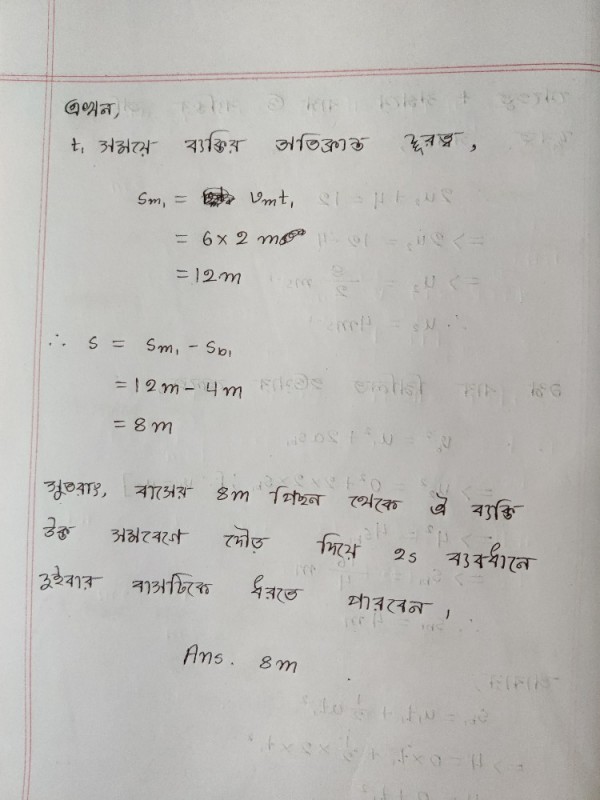 এখন,
t₁ সময়ে ব্যক্তির অতিক্রান্ত দূরত্ব,
Sm₁ = vmt₁
= 6 × 2 m
= 12m
∴ S = Sm₁ - Sb₁
= 12m - 4m
= 8m
সুতরাং, বাসের 8m পিছন থেকে ঐ ব্যক্তি
উক্ত সমবেগে দৌড় দিয়ে 2s ব্যবধানে
দুইবার বাসটিকে ধরতে পারবেন।
Ans. 8m